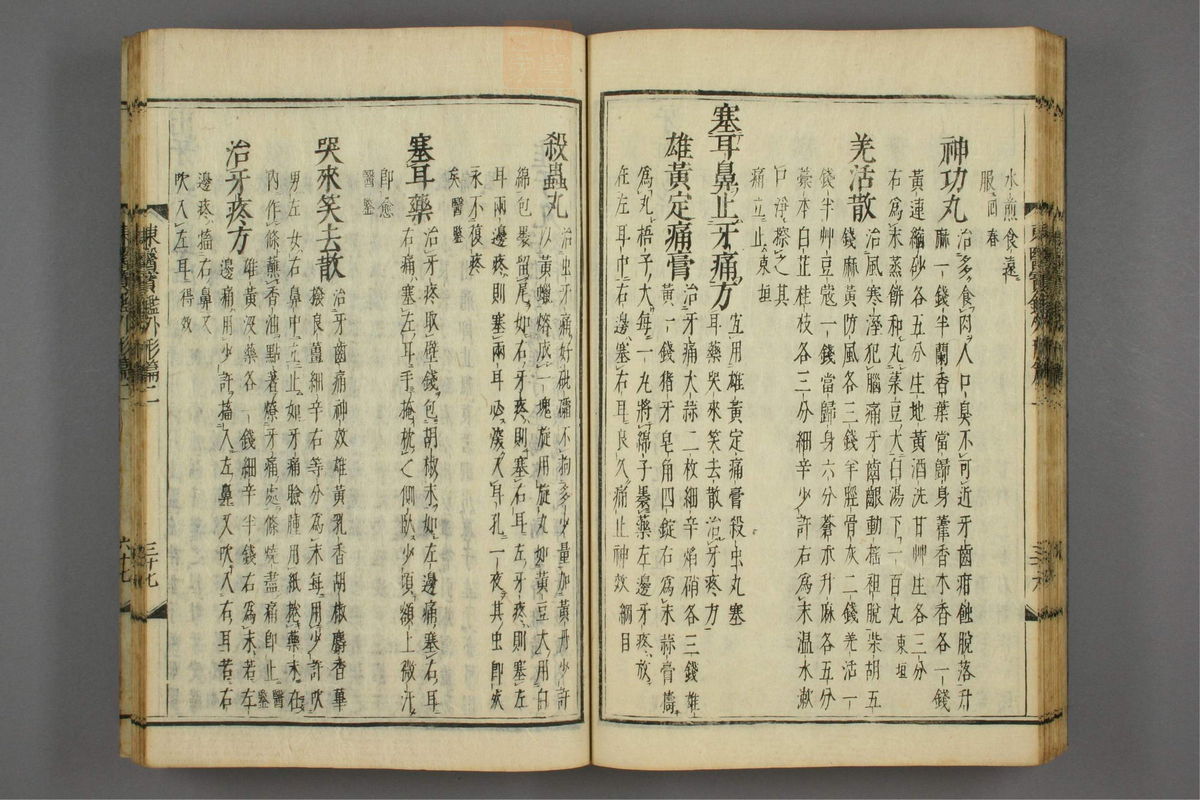 水煎食遠
服回春
神功丸治多食肉人口臭不可近牙齒疳蝕脫落升
麻一錢半蘭香葉當歸身藿香木香各一錢
黃連縮砂各五分生地黃酒洗甘艸生各三分
右爲末蒸餅和丸菉豆大白湯下一百丸東垣
羌活散治風寒溼犯腦痛牙齒齦動搖袒脫柴胡五
錢麻黃防風各三錢羊脛骨灰二錢羌活一
錢半艸豆蔻一錢當歸身六分蒼朮升麻各五分
藁本白芷桂枝各三分細辛少許右爲末溫水漱
口淨擦之其
痛立止東垣
塞耳鼻止牙痛方宜用雄黃定痛膏殺虫丸塞
耳藥哭來笑去散治牙疼方
雄黃定痛膏治牙痛大蒜二枚細辛焰硝各三錢雄
黃一錢猪牙皂角四錠右爲末蒜膏擣
爲丸梧子大每一丸將綿子裹藥左邊牙疼放
在左耳中右邊塞右耳良久痛止神效綱目
殺蟲丸治虫牙痛好砒礵不拘多少量加黃丹少許
以黃蠟熔成一塊旋用旋丸如黃豆大用白
綿包裹留尾如右牙疼則塞右耳左牙疼則塞左
耳兩邊疼則塞兩耳必深入耳孔一夜其虫卽死
永不復疼
矣醫鑒
塞耳藥治牙疼取壁錢包胡椒末如左邊痛塞右耳
右痛塞左耳手掩枕之仰臥少頃額上微汗
卽愈
醫鑒
哭來笑去散治牙齒痛神效雄黃乳香胡椒麝香蓽
撥良薑細辛右等分爲末每用少許吹
男左女右鼻中立止如牙痛臉腫用紙撚藥末在
內作條蘸香油點著燎牙痛處條燒盡痛卽止醫鑒
治牙疼方雄黃沒藥各一錢細辛半錢右爲末若左
邊痛用少許搐入左鼻又吹入右耳若右
邊疼搐右鼻又
吹入左耳得效
東醫寶鑑外形篇二
三十七